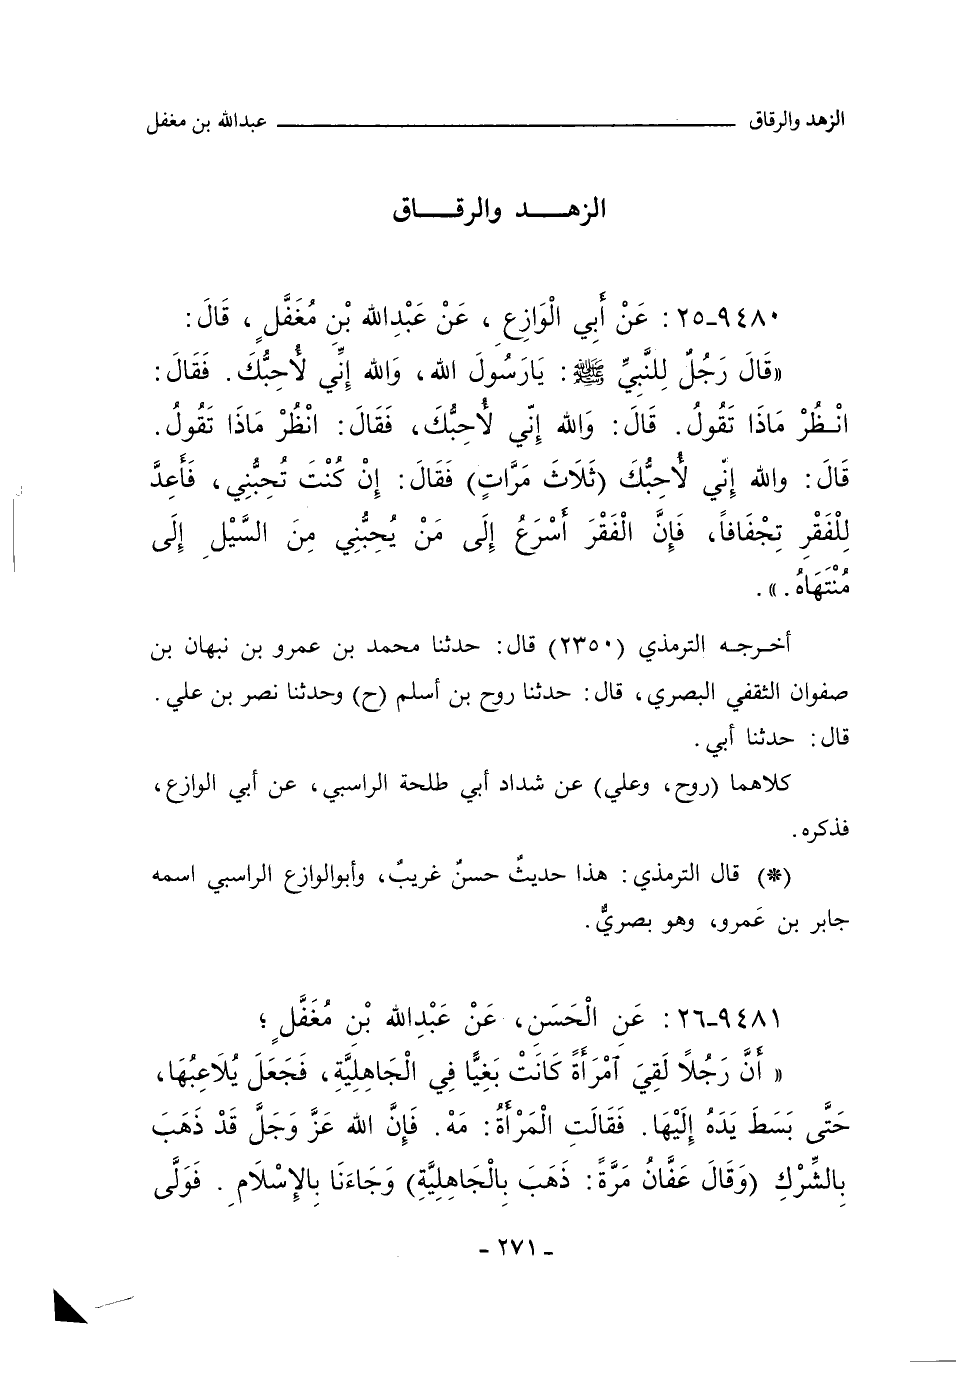 الزهد والرقاق ـــــــ عبدالله بن مغفل
الزهـــد والرقـــاق
٩٤٨٠-٢٥ : عَنْ أَبِي الْوَازِعِ ، عَنْ عَبْدِالله بْنِ مُغَفَّلٍ ، قَالَ :
«قَالَ رَجُلٌ لِلنَّبِيِّ ﷺ : يَارَسُولَ الله ، وَالله إِنِّي لَأُحِبُّكَ . فَقَالَ :
انْـظُرْ مَاذَا تَقُولُ . قَالَ : وَالله إِنّي لَأُحِبُّكَ ، فَقَالَ : انْظُرْ مَاذَا تَقُولُ .
قَالَ : والله إِنّي لَأُحِبُّكَ (ثَلَاثَ مَرَّاتٍ) فَقَالَ : إِنْ كُنْتَ تُحِبُّنِي ، فَأَعِدَّ
لِلْفَقْرِ تِجْفَافاً ، فَإِنَّ الْفَقْرَ أَسْرَعُ إِلَى مَنْ يُحِبُّنِي مِنَ السَّيْلِ إِلَى
مُنْتَهَاهُ . » .
أخـرجـه الترمذي (٢٣٥٠) قال : حدثنا محمد بن عمرو بن نبهان بن
صفوان الثقفي البصري ، قال : حدثنا روح بن أسلم (ح) وحدثنا نصر بن علي .
قال : حدثنا أبي .
كلاهما (روح ، وعلي) عن شداد أبي طلحة الراسبي ، عن أبي الوازع ،
فذكره .
(*) قال الترمذي : هذا حديثٌ حسنٌ غريبٌ ، وأبوالوازع الراسبي اسمه
جابر بن عَمرو ، وهو بصريٌّ .
٩٤٨١-٢٦ : عَنِ الْحَسَنِ ، عَنْ عَبْدِالله بْنِ مُغَفَّلٍ ؛
« أَنَّ رَجُلًا لَقِيَ آمْرَأَةً كَانَتْ بَغِيًّا فِي الْجَاهِلِيَّةِ ، فَجَعَلَ يُلَاعِبُهَا ،
حَتَّى بَسَطَ يَدَهُ إِلَيْهَا . فَقَالَتِ الْمَرْأَةُ : مَهْ . فَإِنَّ الله عَزَّ وَجَلَّ قَدْ ذَهَبَ
بِالشِّرْكِ (وَقَالَ عَفَّانُ مَرَّةً : ذَهَبَ بِالْجَاهِلِيَّةِ) وَجَاءَنَا بِالإِسْلَامِ . فَوَلَّى
- ٢٧١ -